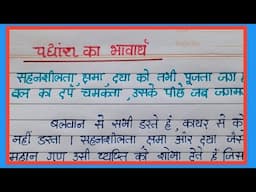 पद्यांश का भावार्थ
सहनशीलता, क्षमा, दया को तभी पूजता जग है
बल का दर्प चमकता, उसके पीछे जब जगमग
बलवान से सभी डरते हैं, कायर से को
नहीं डरता। सहनशीलता, क्षमा और दया जैसे
महान गुण उसी व्यक्ति को शोभा देते हैं जिस